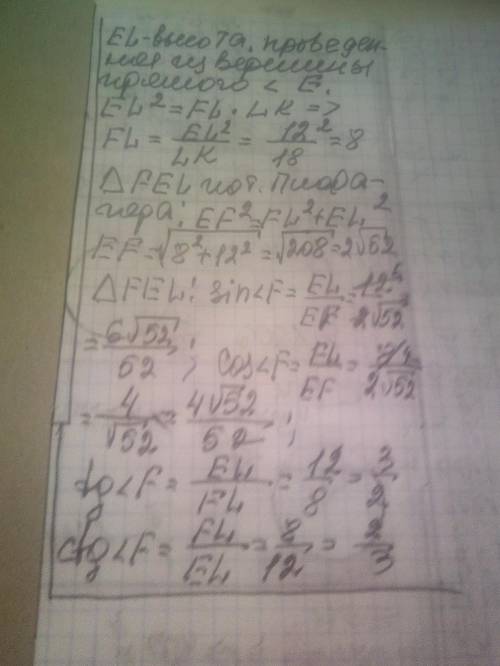 EL-высота, проведен-
ная из вершины
прямого < E.
EL² = FL · LK =>
FL = EL²/LK = 12²/18 = 8
△ FEL по т. Пифа-
гора: EF² = FL² + EL²
EF = √(8² + 12²) = √208 = 2√52
△ FEL: sin<F = EL/EF = 12⁶/2√52
= 6√52/52 ; cos<F = EL/EF = 8 4/2√52
= 4/√52 = 4√52/52 ;
tg<F = EL/FL = 12/8 = 3/2
ctg<F = FL/EL = 8/12 = 2/3